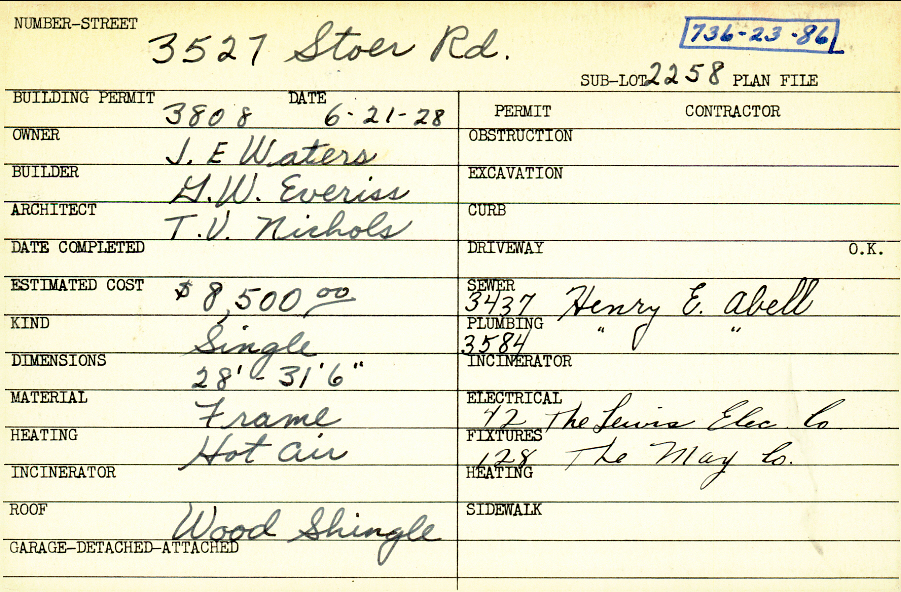 NUMBER-STREET
3527 Stoer Rd.
736-23-86
SUB-LOT 2258 PLAN FILE
BUILDING PERMIT 3808 DATE 6-21-28
PERMIT CONTRACTOR
OWNER J. E Waters
OBSTRUCTION
BUILDER G.W. Everiss
EXCAVATION
ARCHITECT T.V. Nichols
CURB
DATE COMPLETED
DRIVEWAY O.K.
ESTIMATED COST $8,500 00
SEWER
3437 Henry E. Abell
KIND Single
PLUMBING
3584 " "
DIMENSIONS 28' - 31'6"
INCINERATOR
MATERIAL Frame
ELECTRICAL
42 The Lewis Elec. Co
HEATING Hot air
FIXTURES
128 The May Co.
INCINERATOR
HEATING
ROOF Wood Shingle
SIDEWALK
GARAGE-DETACHED-ATTACHED